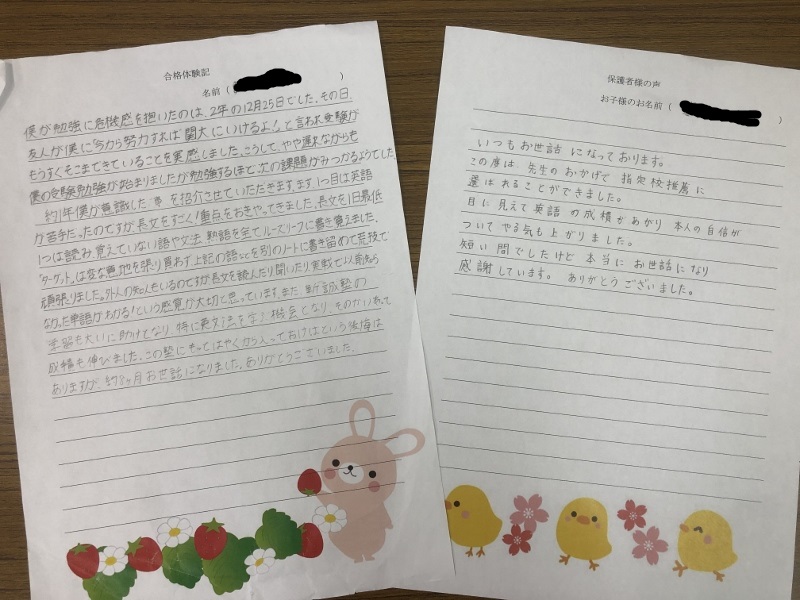 合格体験記
名前 ( )
僕が勉強に危機感を抱いたのは、2年の12月25日でした。その日
友人が僕に「今から努力すれば関大にいけるよ!」と言われ受験が
もうすぐそこまできていることを実感しました。こうして、やや遅れながらも
僕の受験勉強が始まりましたが勉強するほど、次の課題がみつかるようでした。
約1年僕が意識した事を紹介させていただきます。まず1つ目は英語
が苦手だったのですが、長文をすごく重点をおきやってきました。長文を1日最低
1つは読み、覚えていない語や文法、熟語を全てルーズリーフに書き覚えました。
"ターゲット"は変な意地を張り買わず上記の語
を別のノートに書き留めて荒技で
頑張りました。外人の知人もいるのですが長文を読んだり聞いたり実戦で以前知ら
なかった単語がわかる!という感覚が大切と思っています。また
塾の
も大いに助けとなり、特に英文法を学ぶ機会となり、そのかいあって
成績も伸びました。この塾にもっとはやくから入っておけばという後悔は
ありますが、約8ヶ月お世話になりました。ありがとうございました。
保護者様の声
お子様のお名前 ( )
いつもお世話になっております。
この度は、先生のおかげで指定校推薦に
選ばれることができました。
目に見えて英語の成績があがり本人の自信が
ついてやる気も上がりました。
短い間でしたけど本当にお世話になり
感謝しています。ありがとうございました。